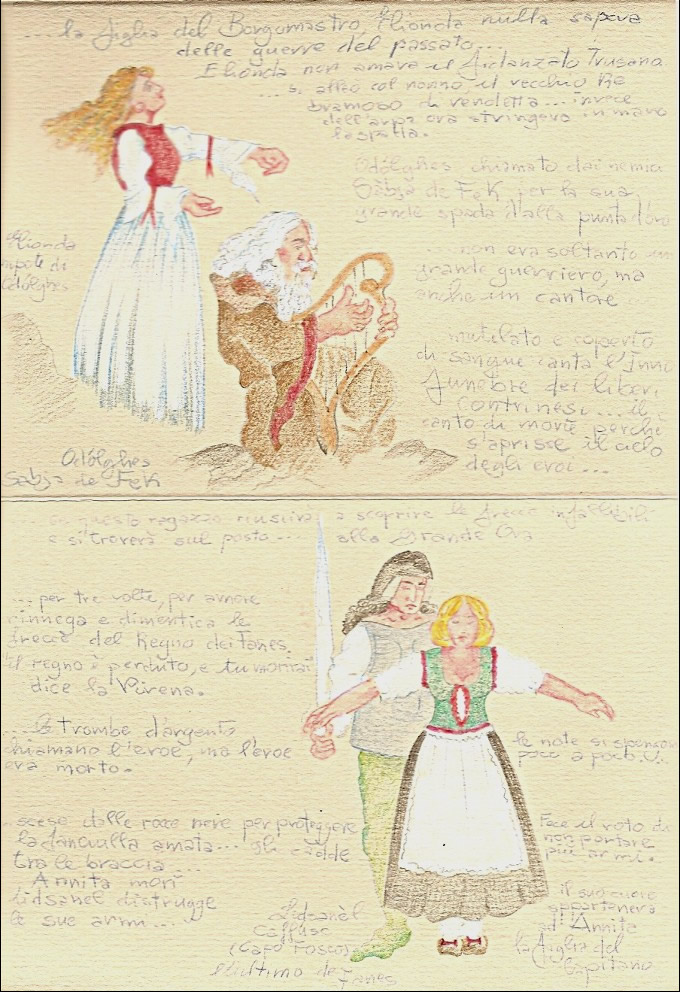 ... la figlia del Borgomastro Elionda nulla sapeva
delle guerre del passato...
Elionda non amava il fidanzato Trusano
... si alzò col nonno, il vecchio Re
bramoso di vendetta... invece
dell'arpa ora stringeva in mano
la spada.
Odólghes chiamato dai nemici
Sàbja de Fek per la sua
grande spada dalla punta d'oro
... non era soltanto un
grande guerriero, ma
anche un cantore
Elionda
nipote di
Odólghes
mutilato e coperto
di sangue canta l'Inno
funebre dei liberi
Contrinesi... il
canto di morte perché
s'aprisse il cielo
degli eroi...
Odólghes
Sabja de Fek
questo ragazzo riuscirà a scoprire le frecce infallibili
e si troverà sul posto.... alla Grande Ora
... per tre volte, per amore
rinnega e dimentica le
frecce del Regno dei Fanes.
Il regno è perduto, e tu morirai
dice la Vivena.
.... le Trombe d'argento
chiamano l'eroe, ma l'eroe
era morto.
le note si spengono
poco a poco...
... scese dalle rocce nere per proteggere
la fanciulla amata... gli cadde
tra le braccia...
Annita morì
Lidsanel distrugge
le sue armi....
Fece il voto di
non portare
più armi.
il suo cuore
apparteneva
ad Annita
la figlia del
Capitano
Lidsanèl
Caffusc
(Capo Fosco)
l'ultimo dei
Fanes